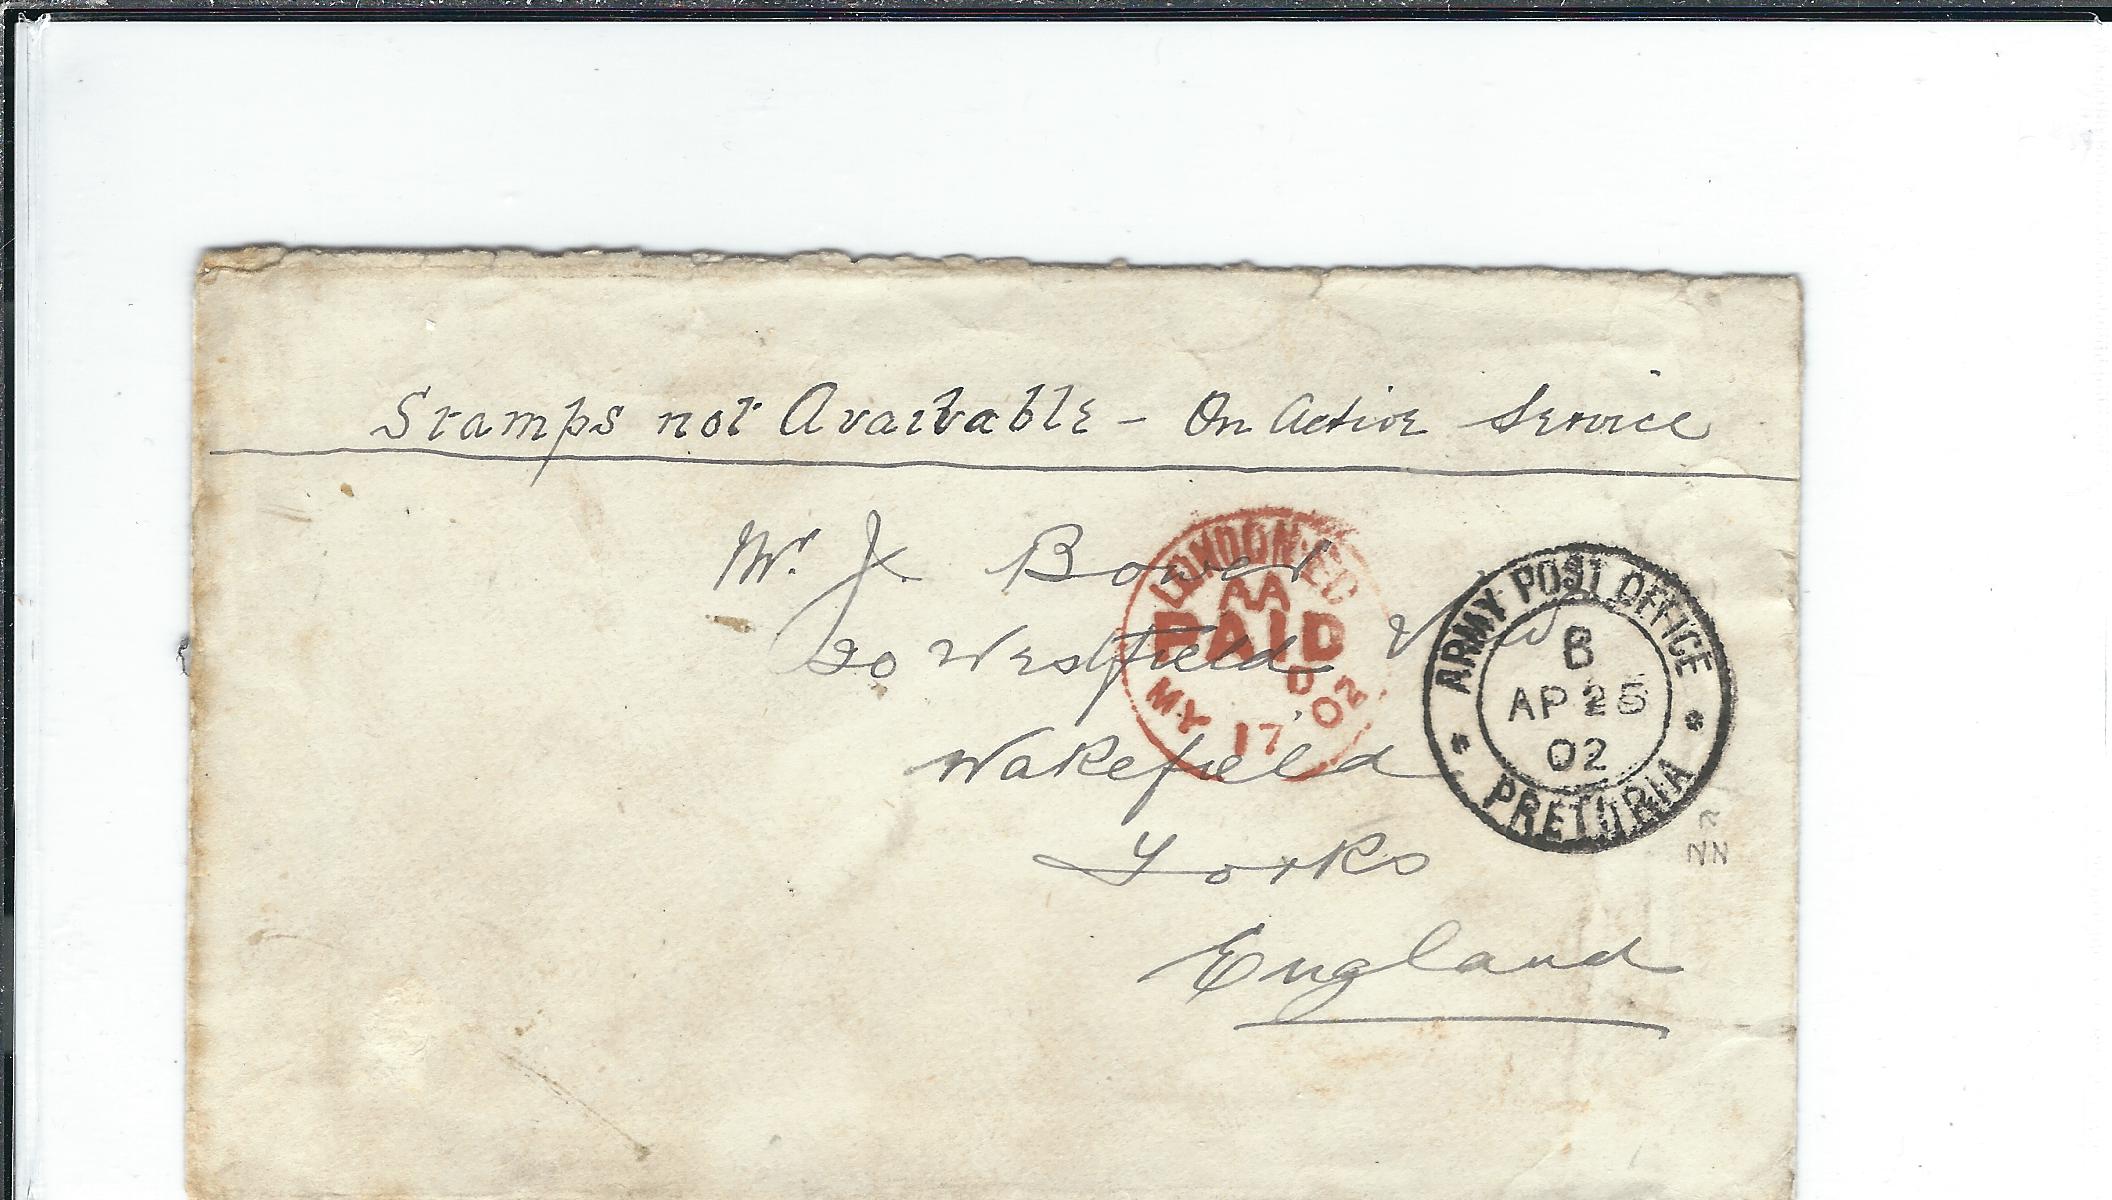 Stamps not Available - On Active Service
Mr. J. Bower
20 Westfield View
Wakefield
Yorks
England
LONDON·ED
AA
PAID
D
MY 17 02
ARMY POST OFFICE
B
AP 25
02
* PRETORIA *
NN